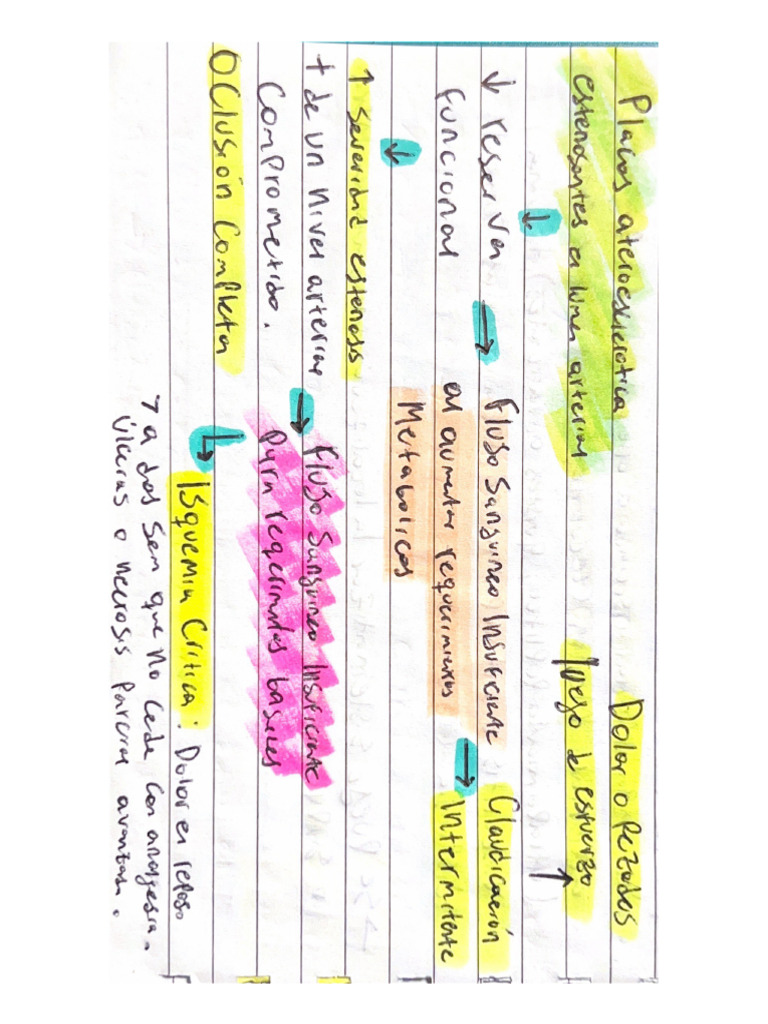 Placas ateroesclerotica
estenosantes en lumen arterial
↓
↓ reserva
funcional
→ Flujo Sanguineo Insuficiente
al aumentar requerimientos
Metabolicos
→ Claudicación
Intermitente
Dolor o Pezades
luego de esfuerzo
↑
↓
↑ severidad estenosis
+ de un nivel arterial
Comprometido.
→ Flujo Sanguineo Insuficiente
para requerimientos basales
Oclusión Completa
↳ Isquemia Crítica: Dolor en reposo
7 a dos sem que no cede con analgesia.
Úlceras o necrosis parcial